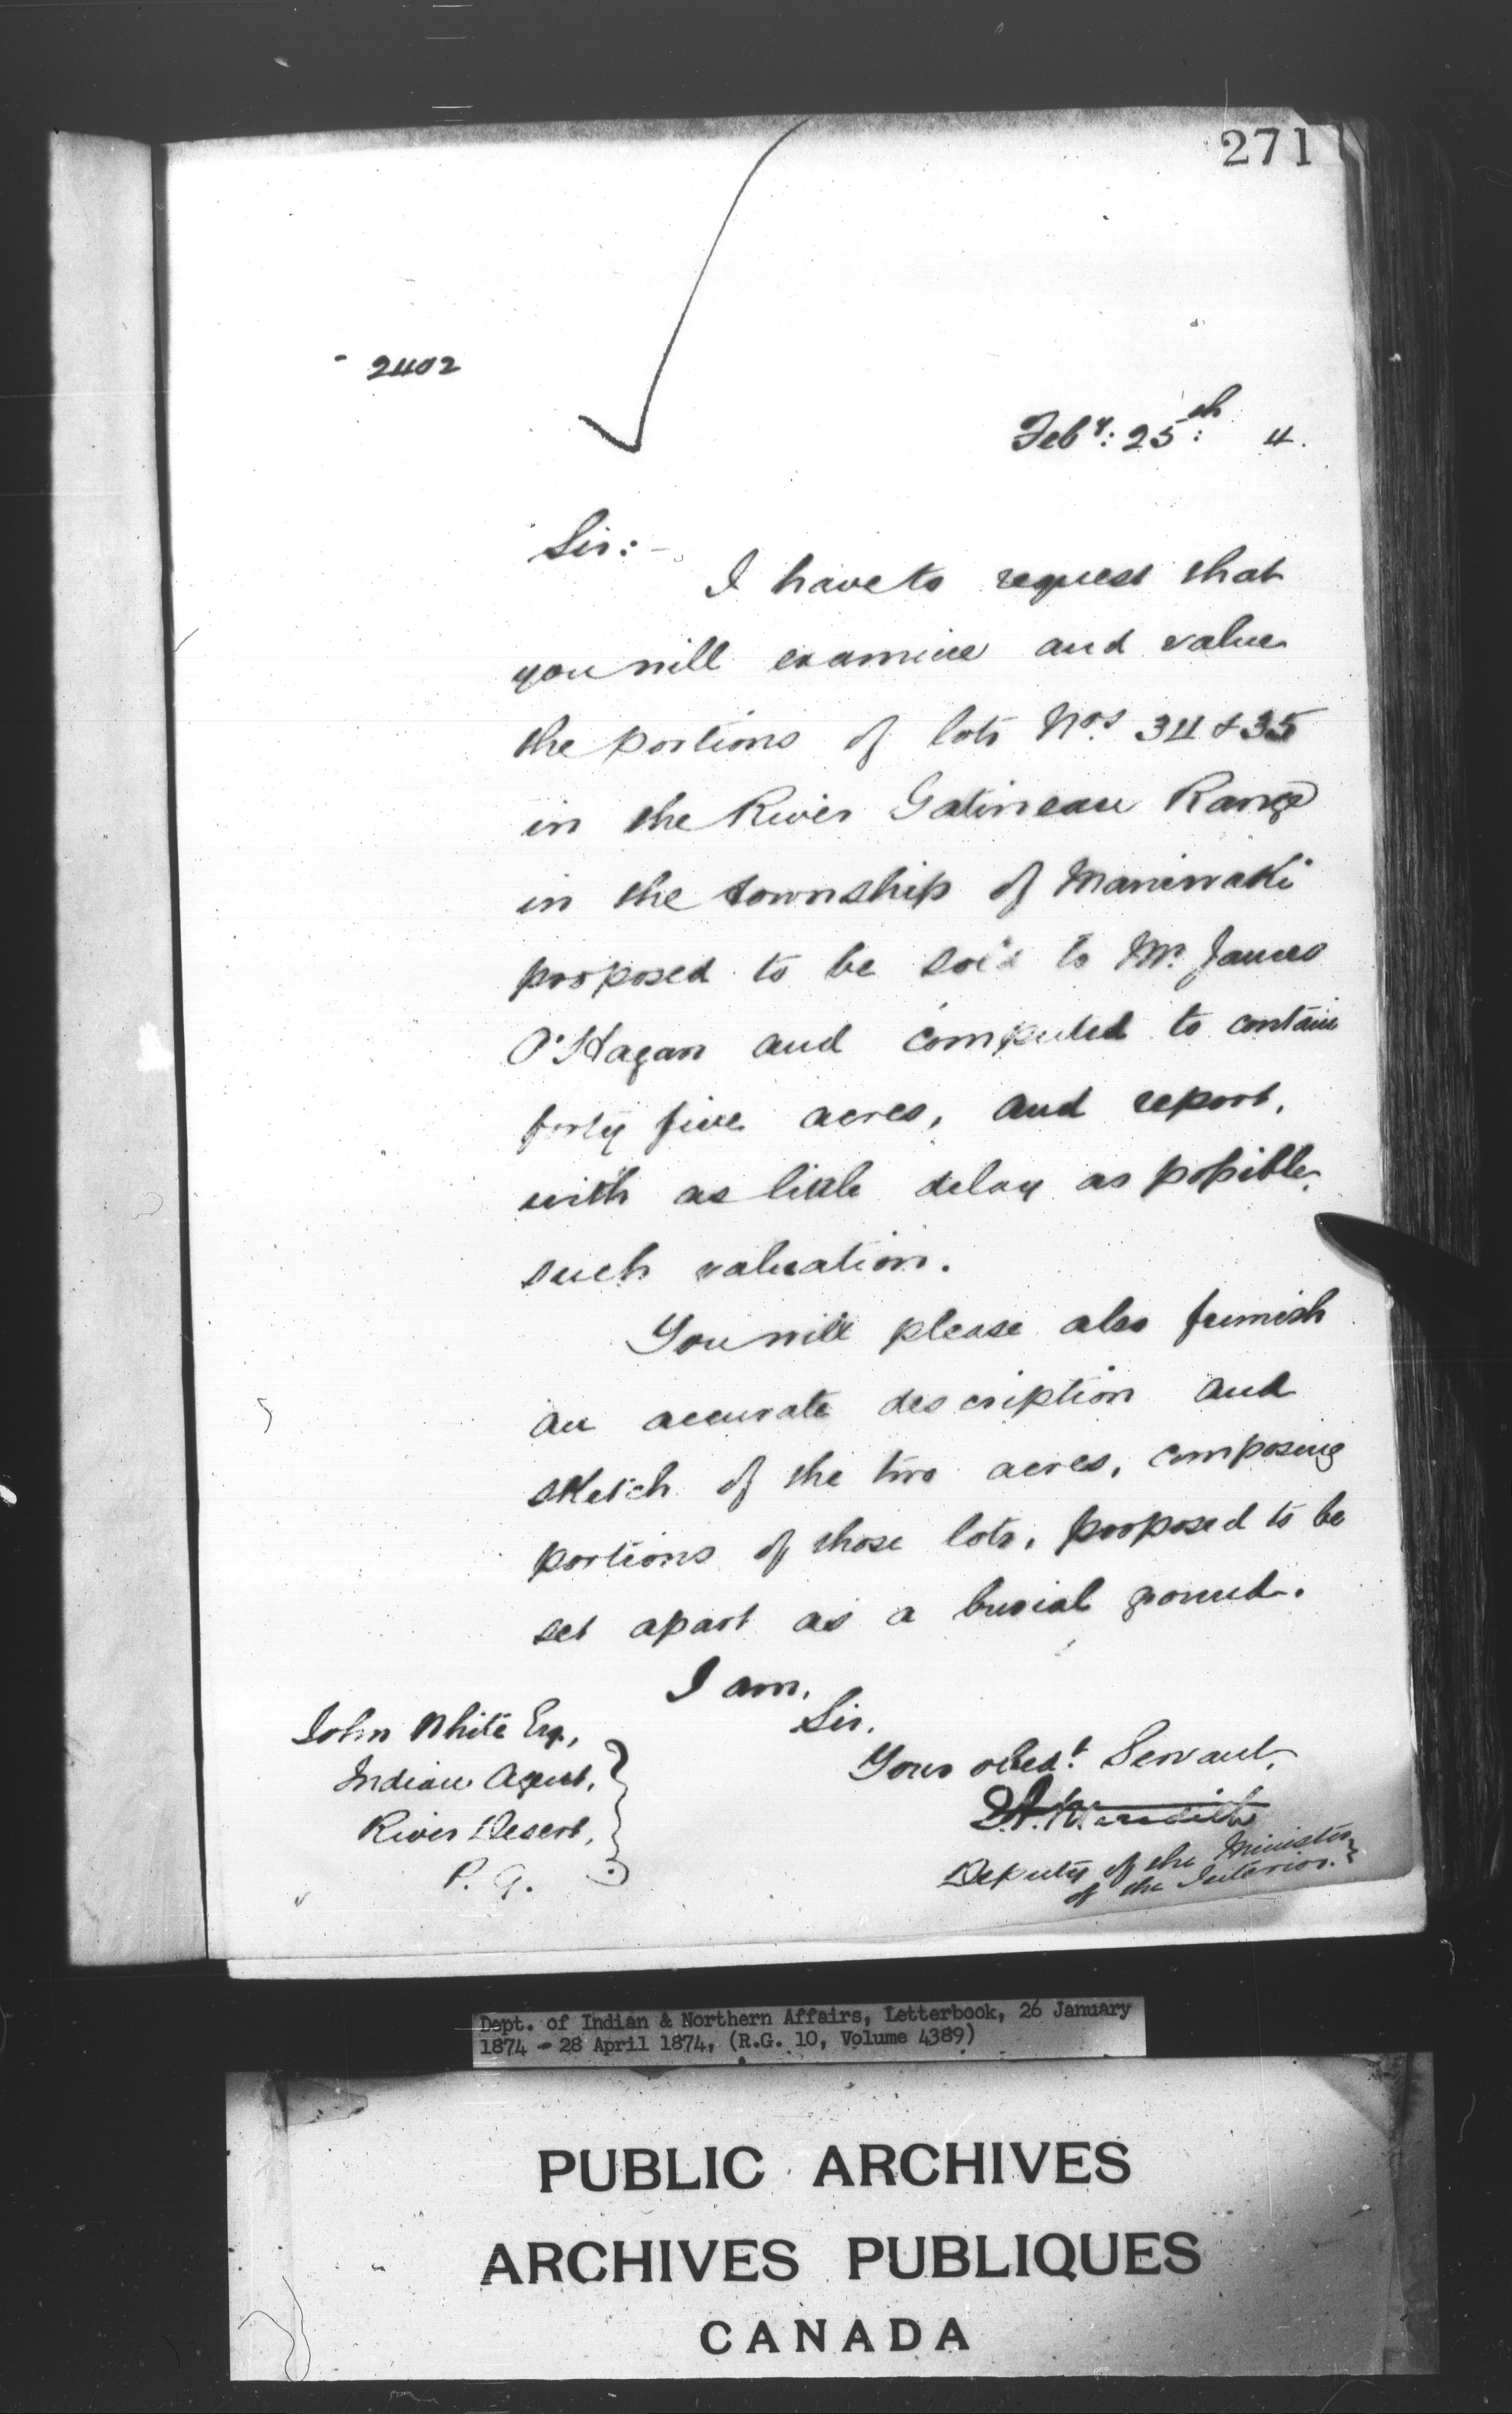 271
2402
Feb^y: 25^th: 4.
Sir:-
I have to request that
you will examine and value
the portions of lots No.s 34 & 35
in the River Gatineau Range
in the township of Maniwaki
proposed to be sold to Mr. James
O'Hagan and computed to contain
forty five acres, and report,
with as little delay as possible,
such valuation.
You will please also furnish
an accurate description and
sketch of the two acres, composing
portions of those lots, proposed to be
set apart as a burial ground.
I am,
Sir,
Your obed^t Servant,
E.A. Meredith
Deputy of the Minister
of the Interior.
John White Esq.,
Indian Agent,
River Desert,
P. Q.
Dept. of Indian & Northern Affairs, Letterbook, 26 January
1874 - 28 April 1874, (R.G. 10, Volume 4389)
PUBLIC ARCHIVES
ARCHIVES PUBLIQUES
CANADA